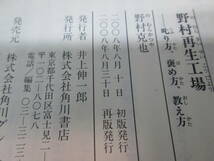 野村再生工場
叱り方、褒め方、教え方
野村克也
二〇〇八年八月十日 初版発行
二〇〇八年八月三十日 再版発行
発行者 井上伸一郎
発行所 株式会社角川書店
東京都千代田区富士見二
〒一〇二-八〇七八
電話/編集 〇三-三二三
発売元 株式会社角川グ